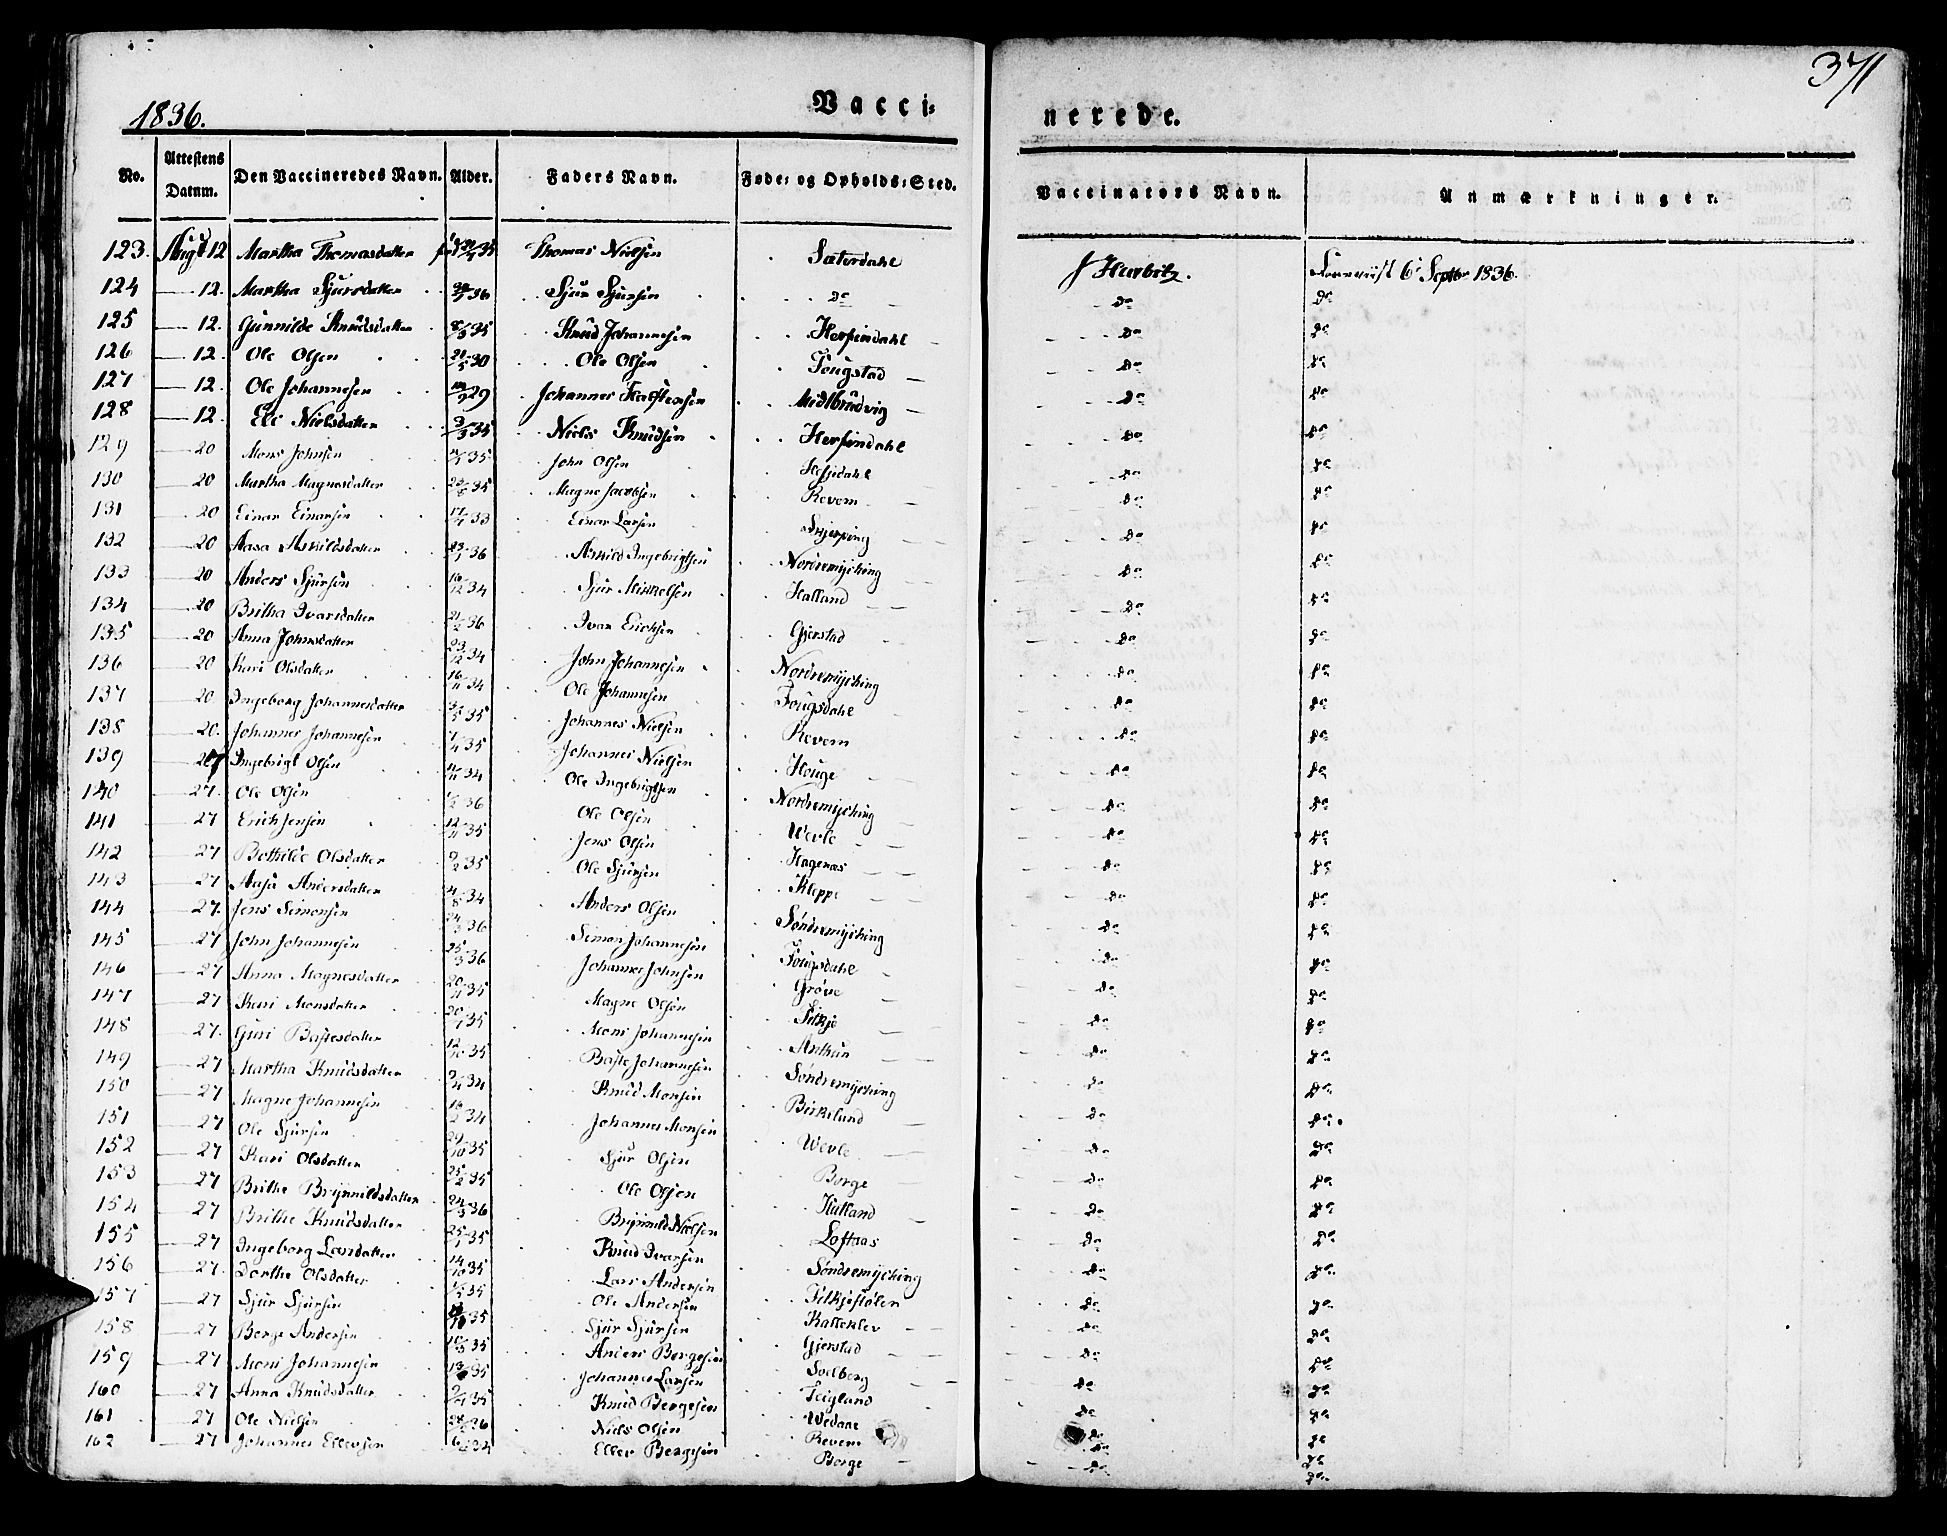 371
1836.
Vacci=
nerede.
No. Attestens Datum. Den Vaccineredes Navn. Alder. Faders Navn. Føde= og Opholds=Sted. Vaccinators Navn. Anmærkninger.
123. Aug 12 Martha Thomasdatter Thomas Nielsen Sæterdahl J Herbitz. Fremviist 6 Septbr 1836.
124 — 12. Martha Sjursdatter 36 Sjur Sjursen do do do
125 — 12. Gunnilde Knudsdatter 8/3 35 Knud Johannesen Herfindahl do do
126 — 12. Ole Olsen 21/5 30 Ole Olsen Fougstad do do
127 — 12. Ole Johannesen 29 Johannes Midtbrudvig do do
128 — 12. Eli Nielsdatter 3/3 35 Niels Knudsen Herfindahl do do
129 — 20 Mons Johnsen 35 John Olsen do do
130 — 20 Martha Magnesdatter 35 Magne Jacobsen Revem do do
131 — 20 Einar Einarsen 17/7 33 Einar Larsen Skjerping do do
132 — 20 Aasa Askildsdatter 23/1 36 Askild Ingebrigtsen Nordremyching do do
133 — 20 Anders Sjursen 16/12 34 Sjur Mikkelsen Halland do do
134 — 20 Britha Ivarsdatter 21/2 36 Ivar Erichsen Gjerstad do do
135 — 20 Anna Johnsdatter 23/12 34 John Johannesen Nordremyching do do
136 — 20 Kari Olsdatter 16/11 34 Ole Johannesen Fougsdahl do do
137 — 20 Ingeborg Johannesdatter 3/5 35 Johannes Nielsen Revem do do
138 — 20. Johannes Johannesen 1/4 35 Johannes Nielsen Houge do do
139 — 27 Ingebrigt Olsen 34 Ole Ingebrigtsen Nordremyching do do
140 — 27. Ole Olsen 36 Ole Olsen Wevle do do
141 — 27 Erich Jensen 12/11 35 Jens Olsen Hagenæs do do
142 — 27 Bothilde Olsdatter 9/2 35 Ole Sjursen Kleppe do do
143 — 27 Aasa Andersdatter 4/8 34 Anders Olsen Søndremyching do do
144 — 27. Jens Simonsen 24/3 36 Simon Johannesen Fougsdahl do do
145 — 27 John Johannesen 25/3 36 Johannes Johnsen Grøve do do
146 — 27 Anna Magnesdatter 20/11 35 Magne Olsen do do
147 — 27 Kari Monsdatter 20/1 35 Moni Johannesen do do
148 — 27. Guri Bastesdatter 12/10 35 Baste Johannesen Søndremyching do do
149 — 27 Martha Knudsdatter 9/4 34 Knud Monsen Birkelund do do
150 — 27 Magne Johannesen 34 Johannes Monsen Wevle do do
151 — 27 Ole Sjursen 29/10 35 Sjur Olsen Borge do do
152 — 27 Kari Olsdatter 25/2 35 Ole Olsen do do
153 — 27 Brithe Brynnildsdatter 24/3 36 Brynnild Nielsen Loftaas do do
154 — 27 Brithe Knudsdatter 25/1 35 Knud Ivarsen Søndremyching do do
155 — 27 Ingeborg Larsdatter 14/10 35 Lars Andersen do do
156 — 27. Dorthe Olsdatter 35 Ole Andersen do do
157 — 27 Sjur Sjursen 35 Sjur Sjursen Kalleklev do do
158 — 27 Berge Andersen 10/3 35 Anders Bergesen Gjerstad do do
159 — 27 Moni Johannesen 35 Johannes Larsen Soelberg do do
160 — 27 Anna Knudsdatter 35 Knud Bergesen Teigland do do
161 — 27 Ole Nielsen 36 Niels Olsen Revem do do
162 — 27 Johannes Ellevsen 34 Ellev Bergesen Borge do do